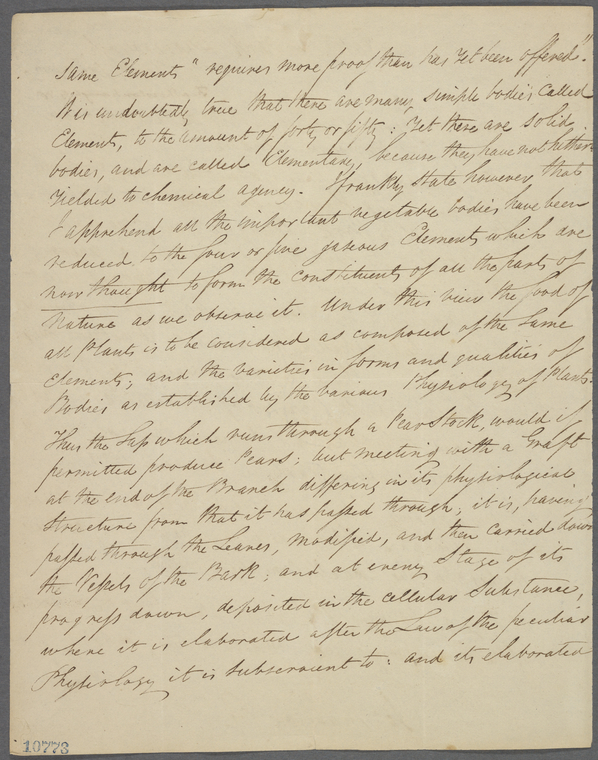 same Elements" requires more proof than has yet been offered".
It is undoubtedly true that there are many simple bodies called
Elements, to the amount of forty or fifty: Yet these are solid
bodies, and are called Elementary, because they have not hither
yielded to chemical agency. I frankly state however that
I apprehend all the important vegetable bodies have been
reduced to the four or five gaseous Elements which are
now thought to form the constituents of all the parts of
Nature as we observe it. Under this view the food of
all Plants is to be considered as composed of the same
elements; and the varieties in forms and qualities of
Bodies as established by the various Physiology of Plants.
Thus the Sap which runs through a Pear Stock, would if
permitted produce Pears; but meeting with a Graft
at the end of the Branch differing in its physiological
structure from that it has passed through; it is, having
passed through the Leaves, modified, and then carried down
the Vessels of the Bark; and at every Stage of its
progress down, deposited in the cellular Substance,
where it is elaborated after the Law of the peculiar
Physiology it is subservient to: and its elaborated
10773